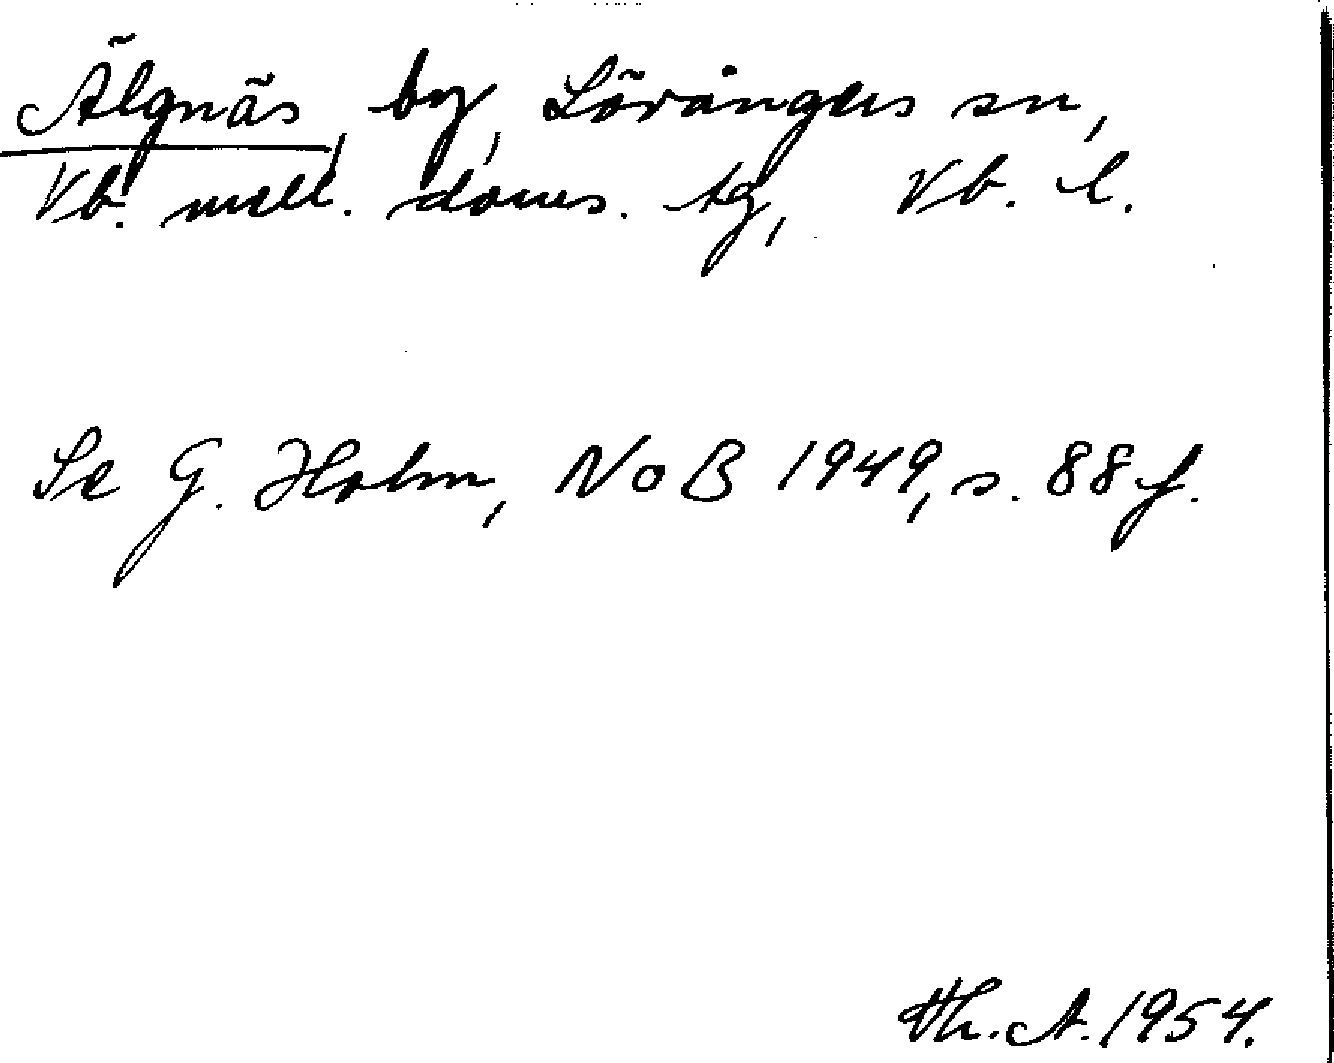 Älgnäs, by, Lövångers sn,
Vb. mell. doms. tg, Vb. l.
Se G. Holm, NoB 1949, s. 88 f.
Th. A. 1954.